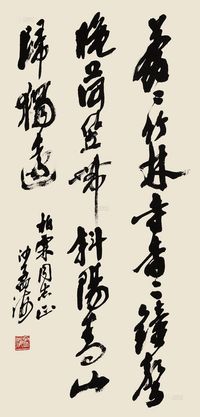 蒼蒼竹林寺杳杳鐘聲
晚荷笠帶斜陽青山
歸獨遠
柏霖同志正
沙孟海